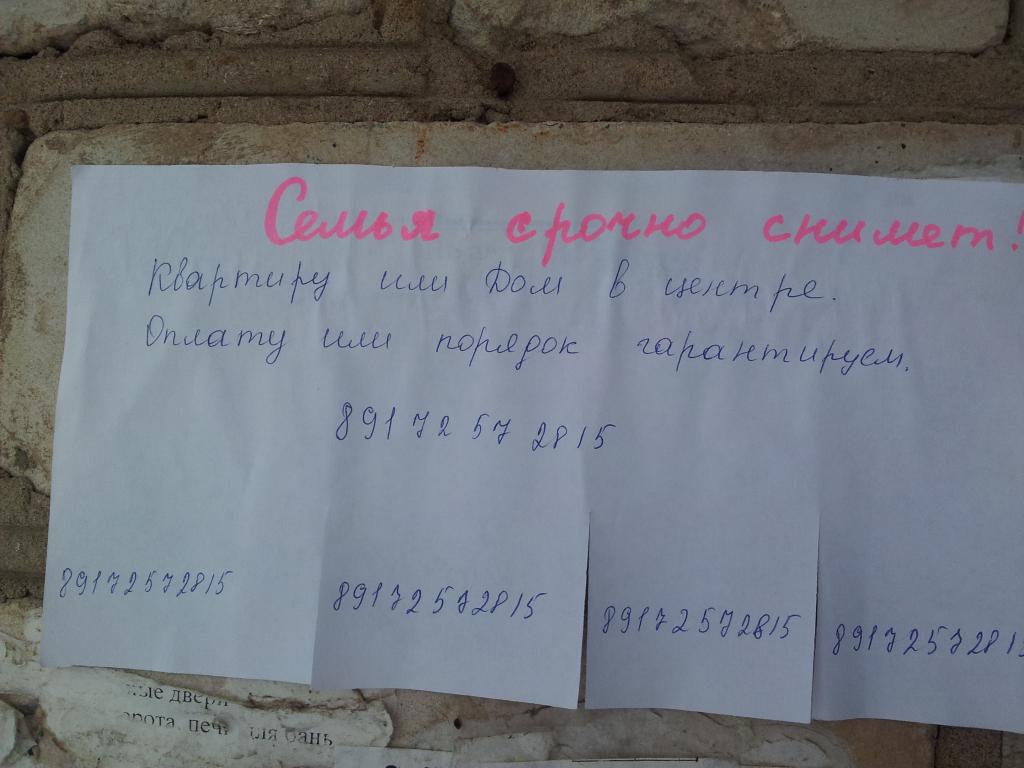 Семья срочно снимет!
Квартиру или Дом в центре.
Оплату или порядок гарантируем.
8917257 2815
89172572815
89172572815
89172572815
8917257281
ные двери
орота, печ для бань